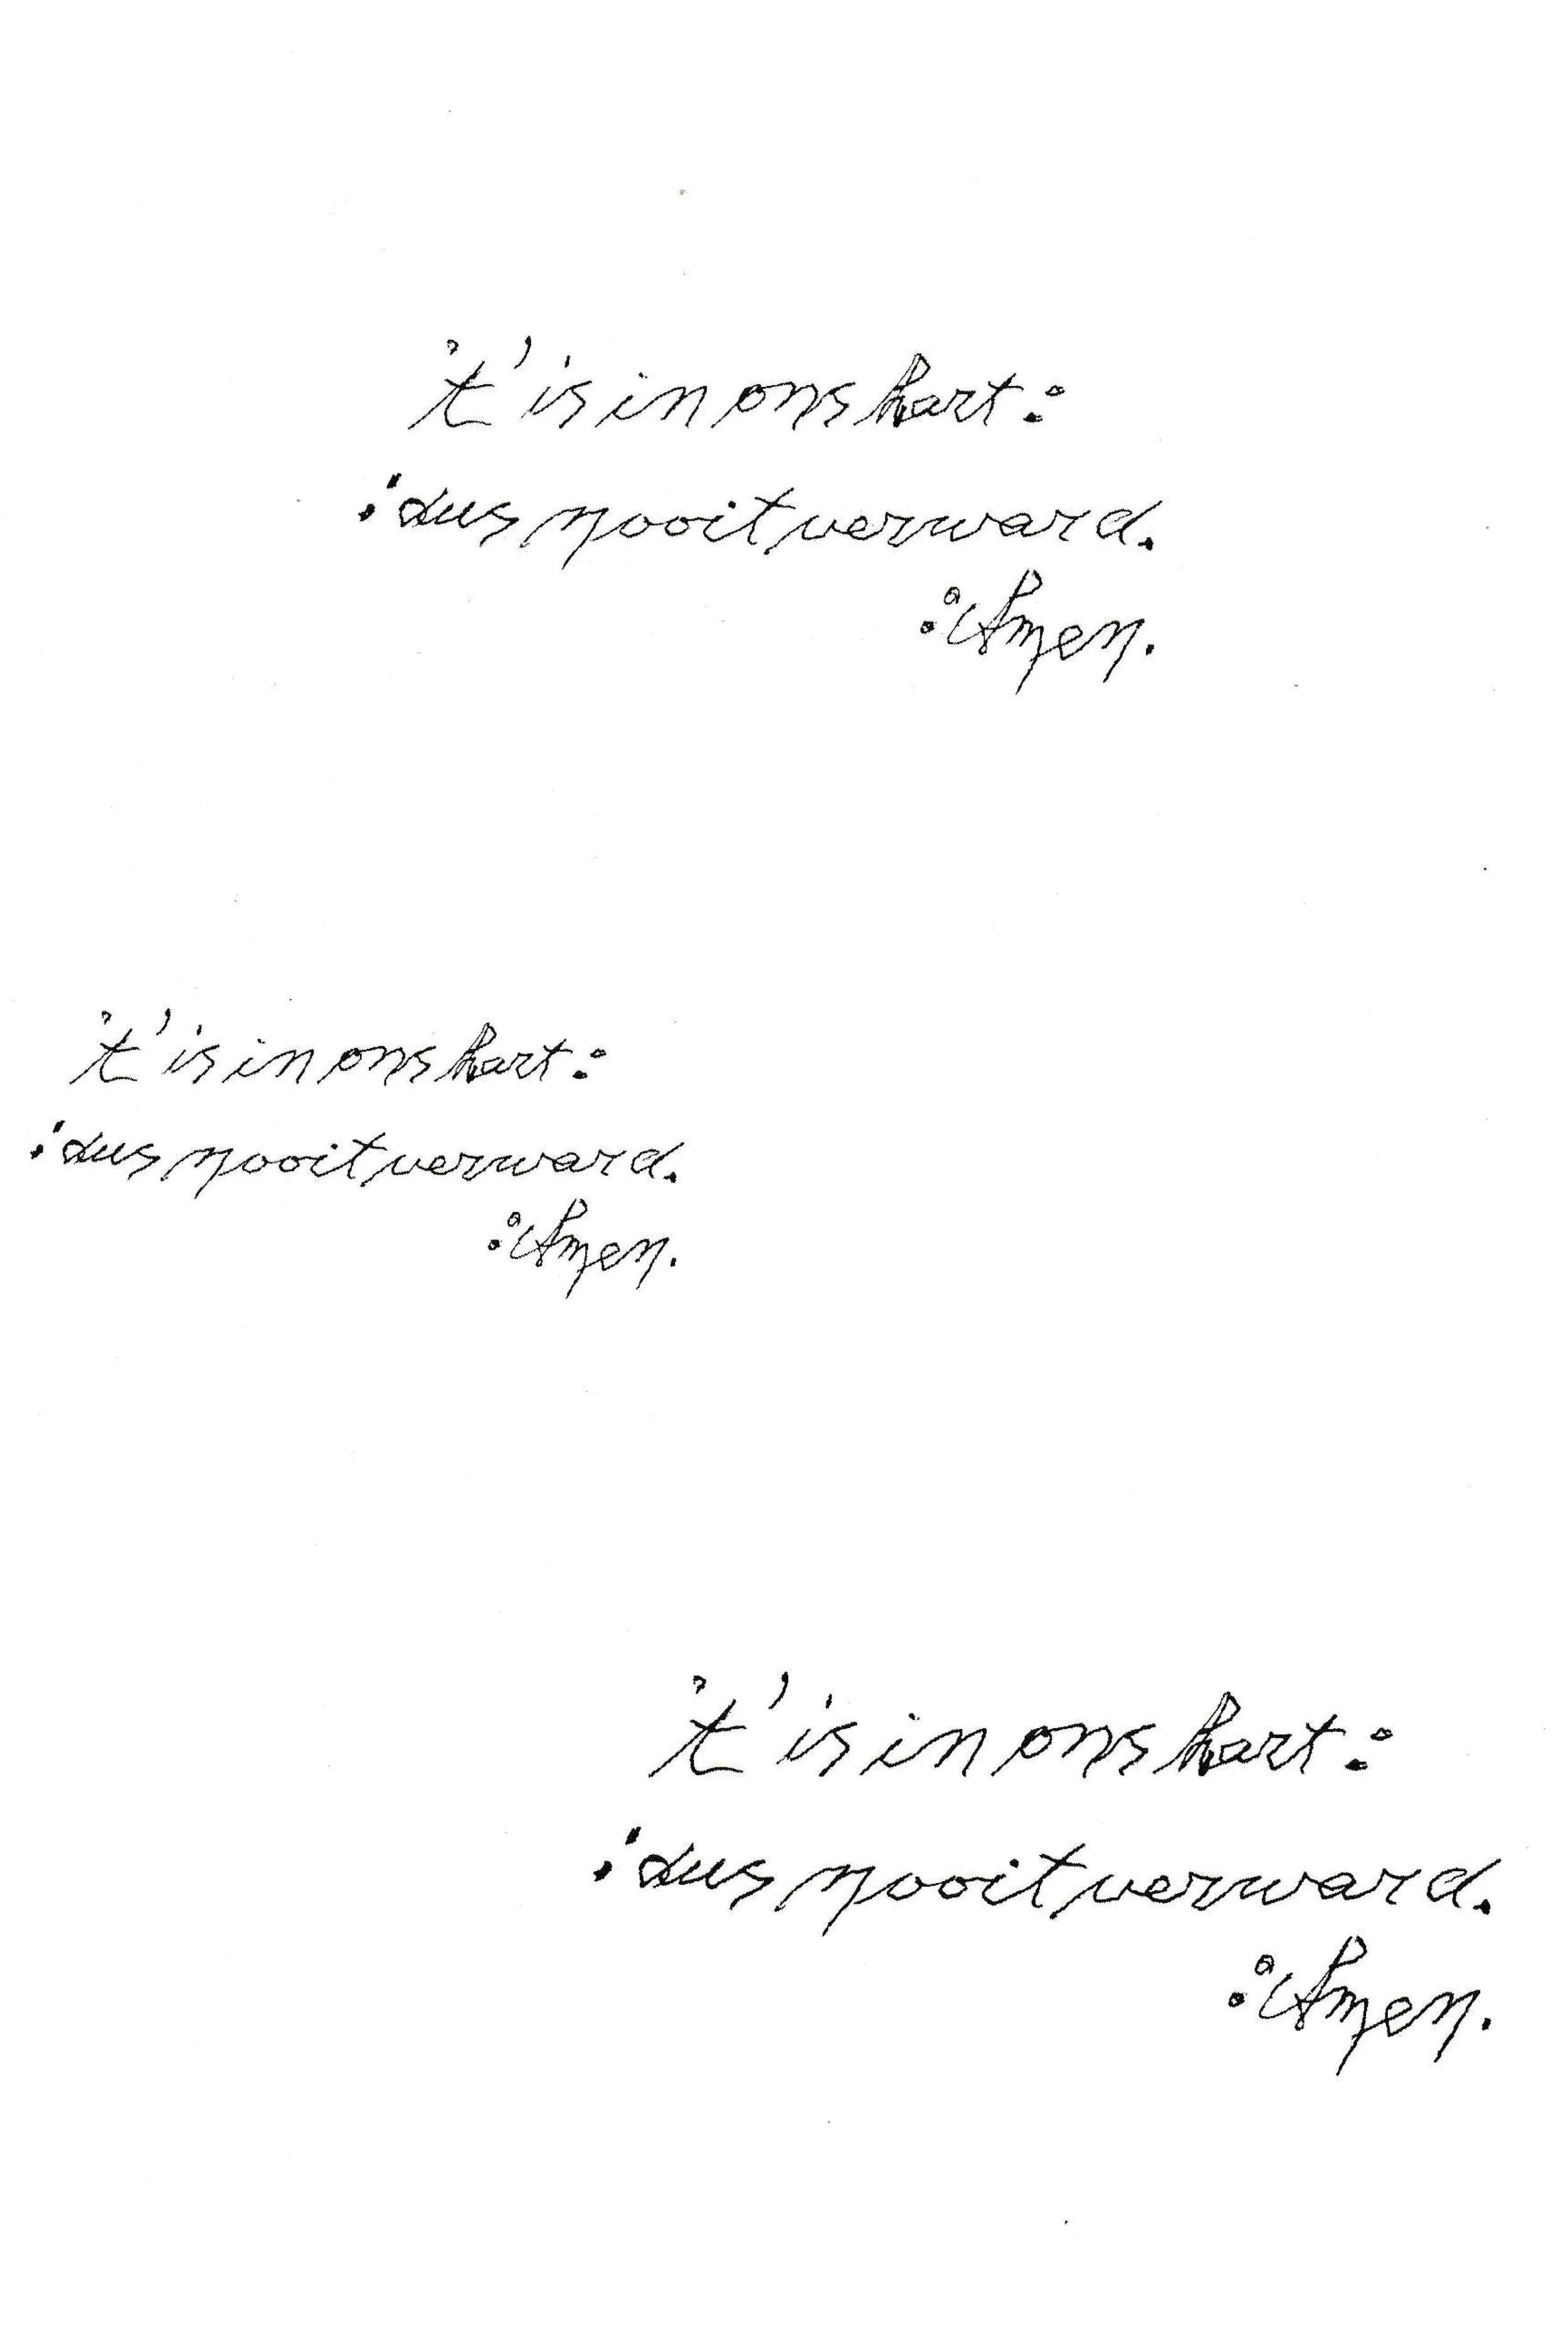 't' is in ons hart:
:dus nooit verward.
:Amen.
't' is in ons hart:
:dus nooit verward.
:Amen.
't' is in ons hart:
:dus nooit verward.
:Amen.